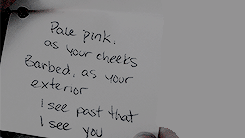 Pale pink,
as your cheeks
Barbed, as your
exterior
I see past that
I see you